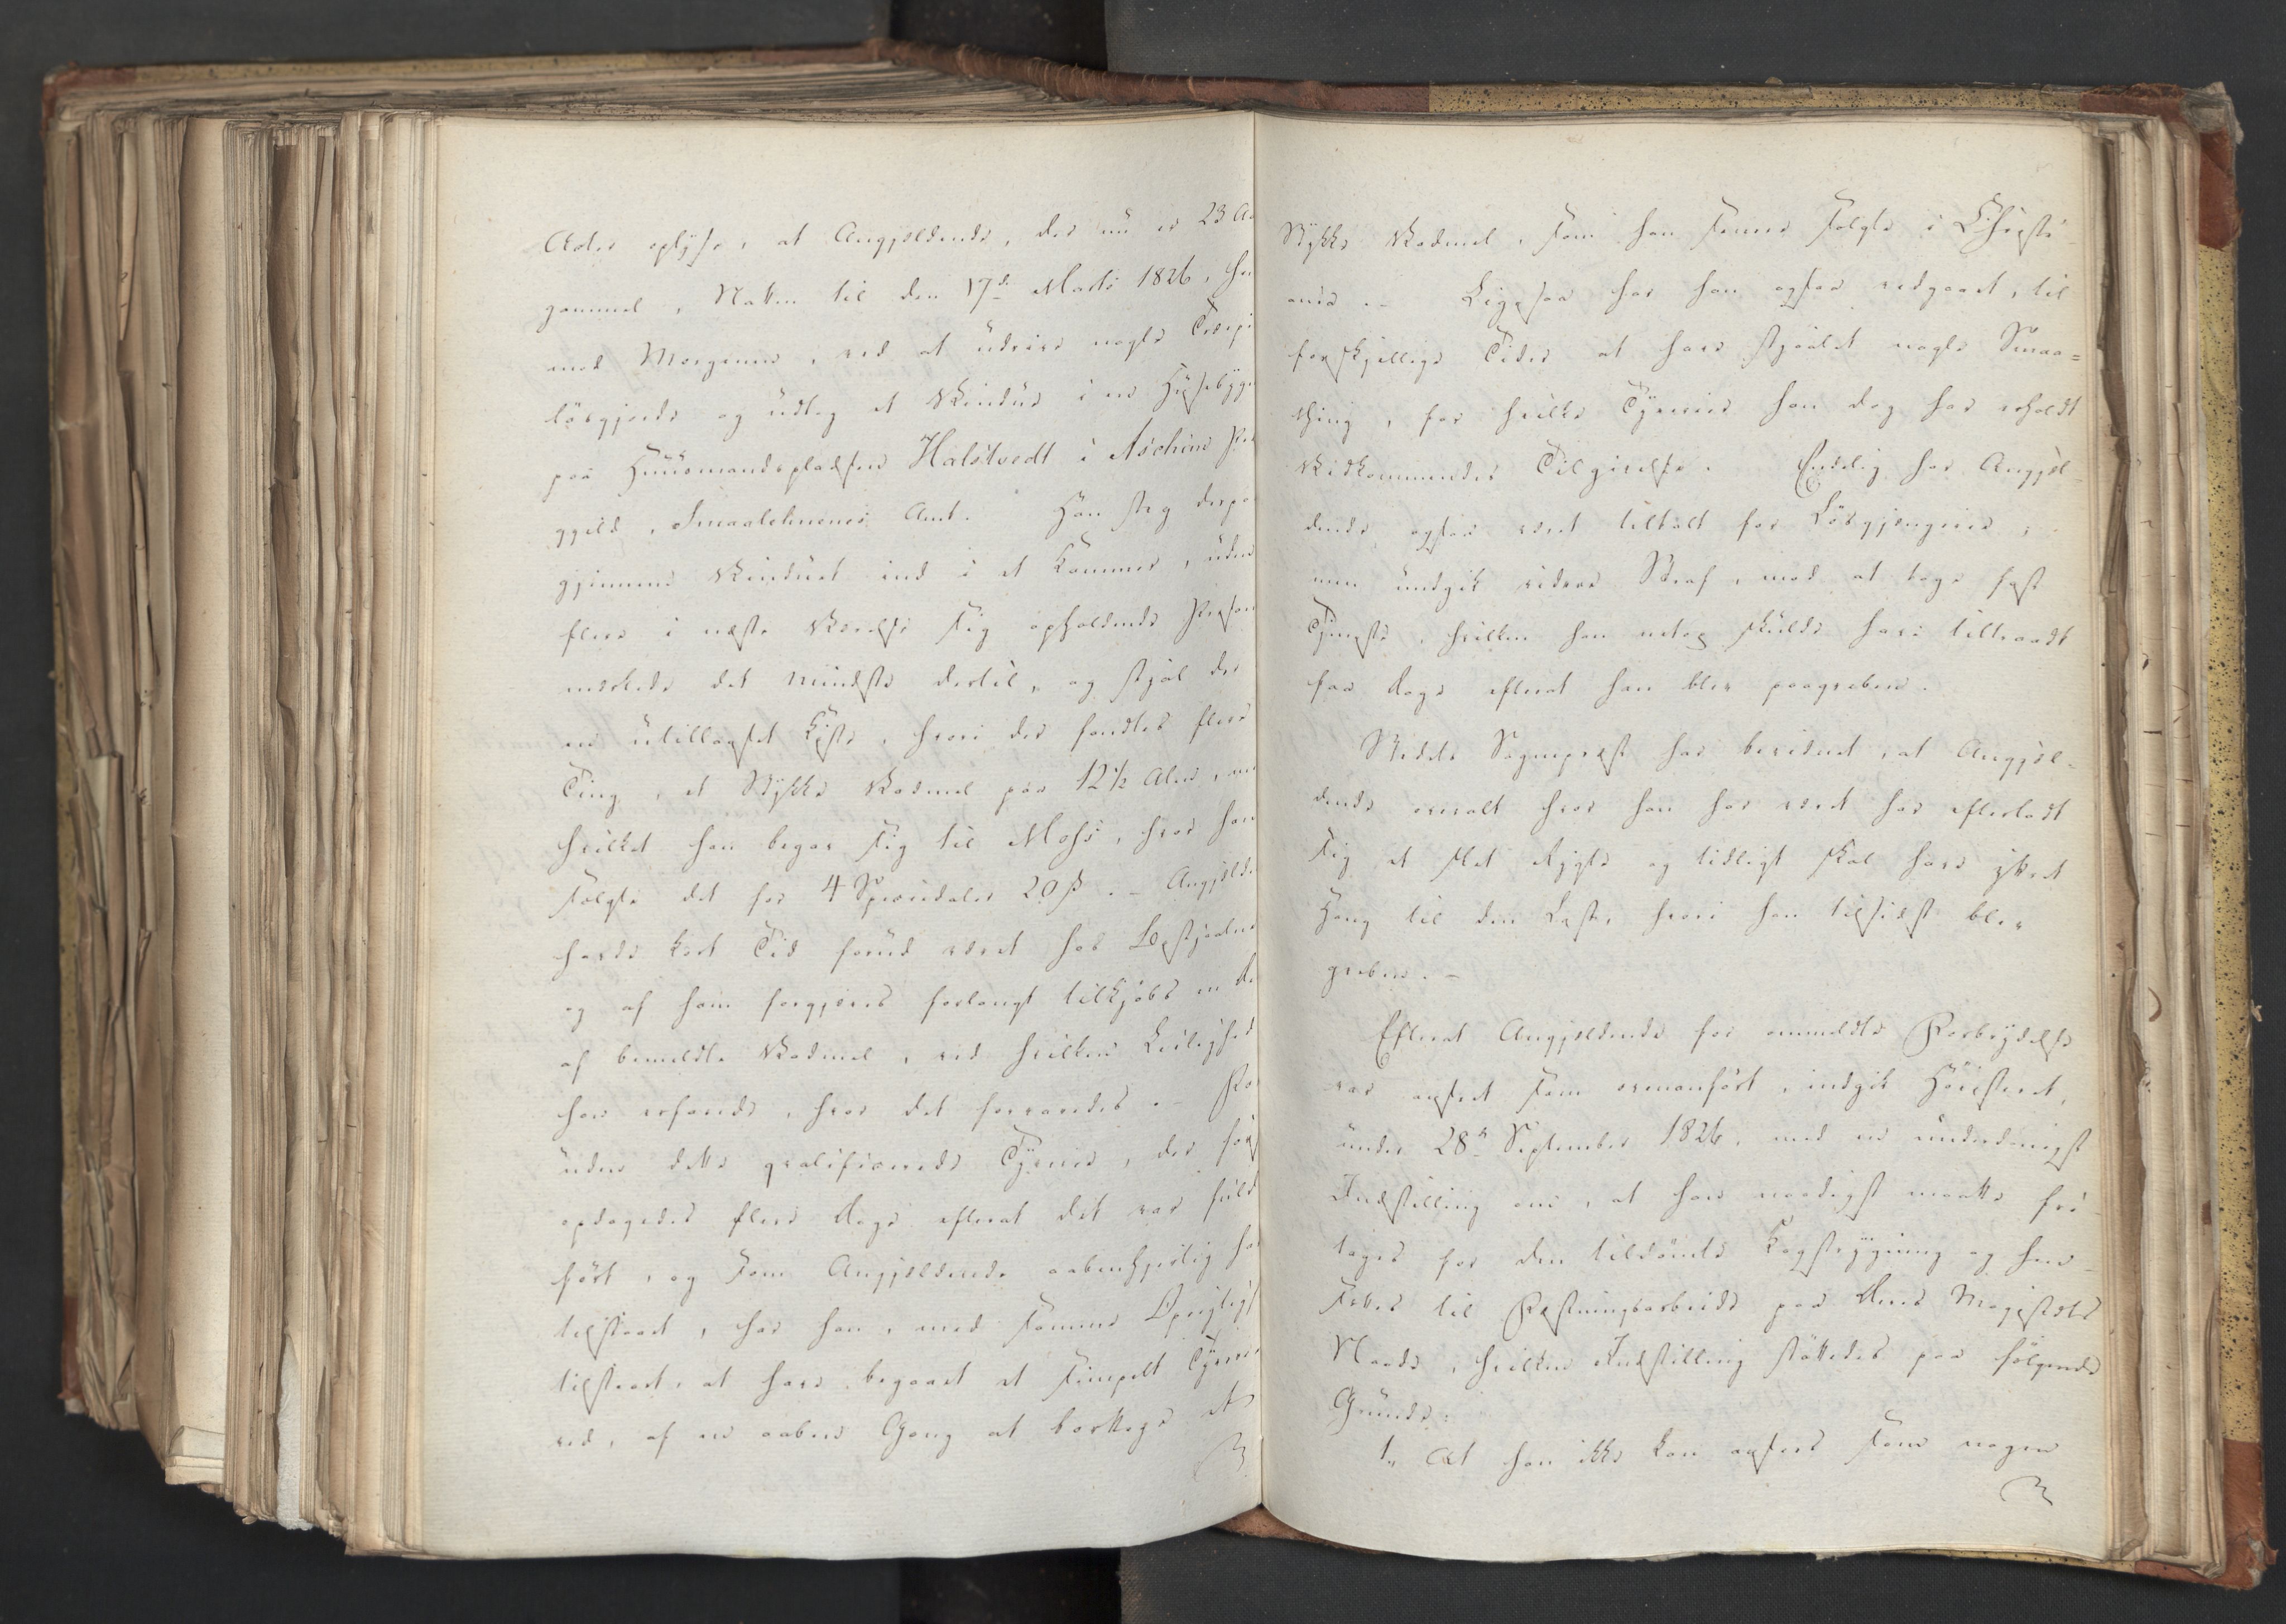 Acter oplyse, at Angjeldende, der nu er 23 Aar
gammel, Natten til den 17de Marts 1826, hen
mod Morgenen, ved at udrive nogle Træpi
løsgjorde og udtog et Vindue i en Huusebygn
paa Huusmandspladsen Halstvedt i Aschims Præ
gjeld, Smaalehnenes Amt. Han steg derpaa
gjennem Vinduet ind i et Kammer, uden
flere i næste Værelse sig opholdende Person
mærkede det mindste dertil, og stjal der
en utillaaset Kiste, hvori der fandtes flere
Ting, et Stykke Vadmel paa 12½ Alen, med
hvilket han begav sig til Moss, hvor han
solgte det for 4 Speciedaler 20 ß. - Angjelde
havde kort Tid forud været hos Bestjaalne
og af ham forgjeves forlangt tilkjøbs en De
af bemeldte Vadmel, ved hvilken Leilighed
han erfarede, hvor det forvaredes. - For
uden dette qvalificerede Tyverie, der først
opdagedes flere Dage efterat det var fuld
ført, og som Angjeldende aabenhjertig har
tilstaaet, har han, med samme Oprigtigh
tilstaaet, at have begaaet et simpelt Tyverie
ved, af en aaben Gang at borttage et
Stykke Vadmel, som han senere solgte i Christi-
ania. - Ligesaa har han ogsaa vedgaaet, til
forskjellige Tider at have stjaalet nogle Smaa=
thing, for hvilke Tyverier han dog har erholdt
Vedkommendes Tilgivelse. Endelig har Angjel-
dende ogsaa været tiltalt for Løsgjængerie,
men undgik videre Straf, mod at tage fast
Tjeneste, hvilken han netop skulde have tiltraadt
faa Dage efterat han blev paagreben.
Stedets Sognepræst har bevidnet, at Angjel-
dende overalt hvor han har været har efterladt
sig et slet Rygte og tidligt skal have yttret
Hang til den Last, hvori han tilsidst blev
greben. -
Efterat Angjeldende for anmeldte Forbrydelse
var anseet som ovenanført, indgik Høiesteret,
under 28de September 1826, med en underdanigst
Indstilling om, at han naadigst maatte fri-
tages for den tildømte Kagstrygning og hen-
sættes til Fæstningsarbeide paa Deres Majestæts
Naade, hvilken Indstilling støttedes paa følgende
Grunde:
1., At han ikke kan ansees som nogen